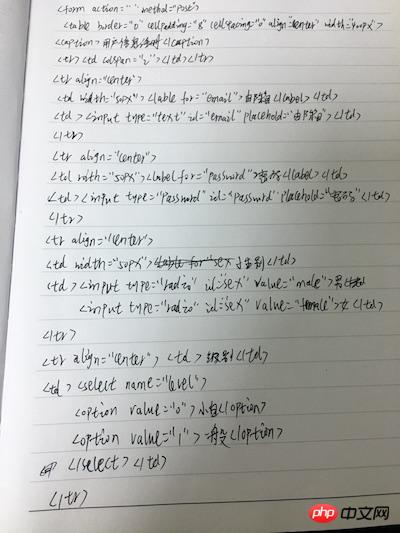 <form action="" method="post">
<table border="0" cellpadding="8" cellspacing="0" align="center" width="400px">
<caption>用户信息</caption>
<tr><td colspan="2"></td></tr>
<tr align="center">
<td width="50px"><lable for="email">邮箱</label></td>
<td><input type="text" id="email" placehold="邮箱"></td>
</tr>
<tr align="center">
<td width="50px"><label for="password">密码</label></td>
<td><input type="password" id="password" placehold="密码"></td>
</tr>
<tr align="center">
<td width="50px"> 性别</td>
<td><input type="radio" id="sex" value="male">男
<input type="radio" id="sex" value="female">女</td>
</tr>
<tr align="center"><td>级别</td>
<td><select name="level">
<option value="0">小白</option>
<option value="1"></option>
</select></td>
</tr>
php 中文网